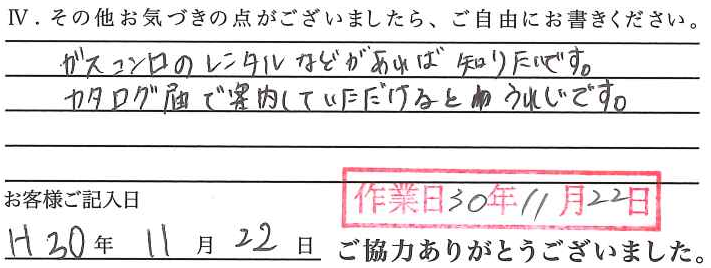 Ⅳ. その他お気づきの点がございましたら、ご自由にお書きください。
ガスコンロのレンタルなどがあれば 知りたいです。
カタログ届で案内していただけると うれしいです。
お客様ご記入日
作業日30年11月22日
H30年 11月 22日 ご協力ありがとうございました。